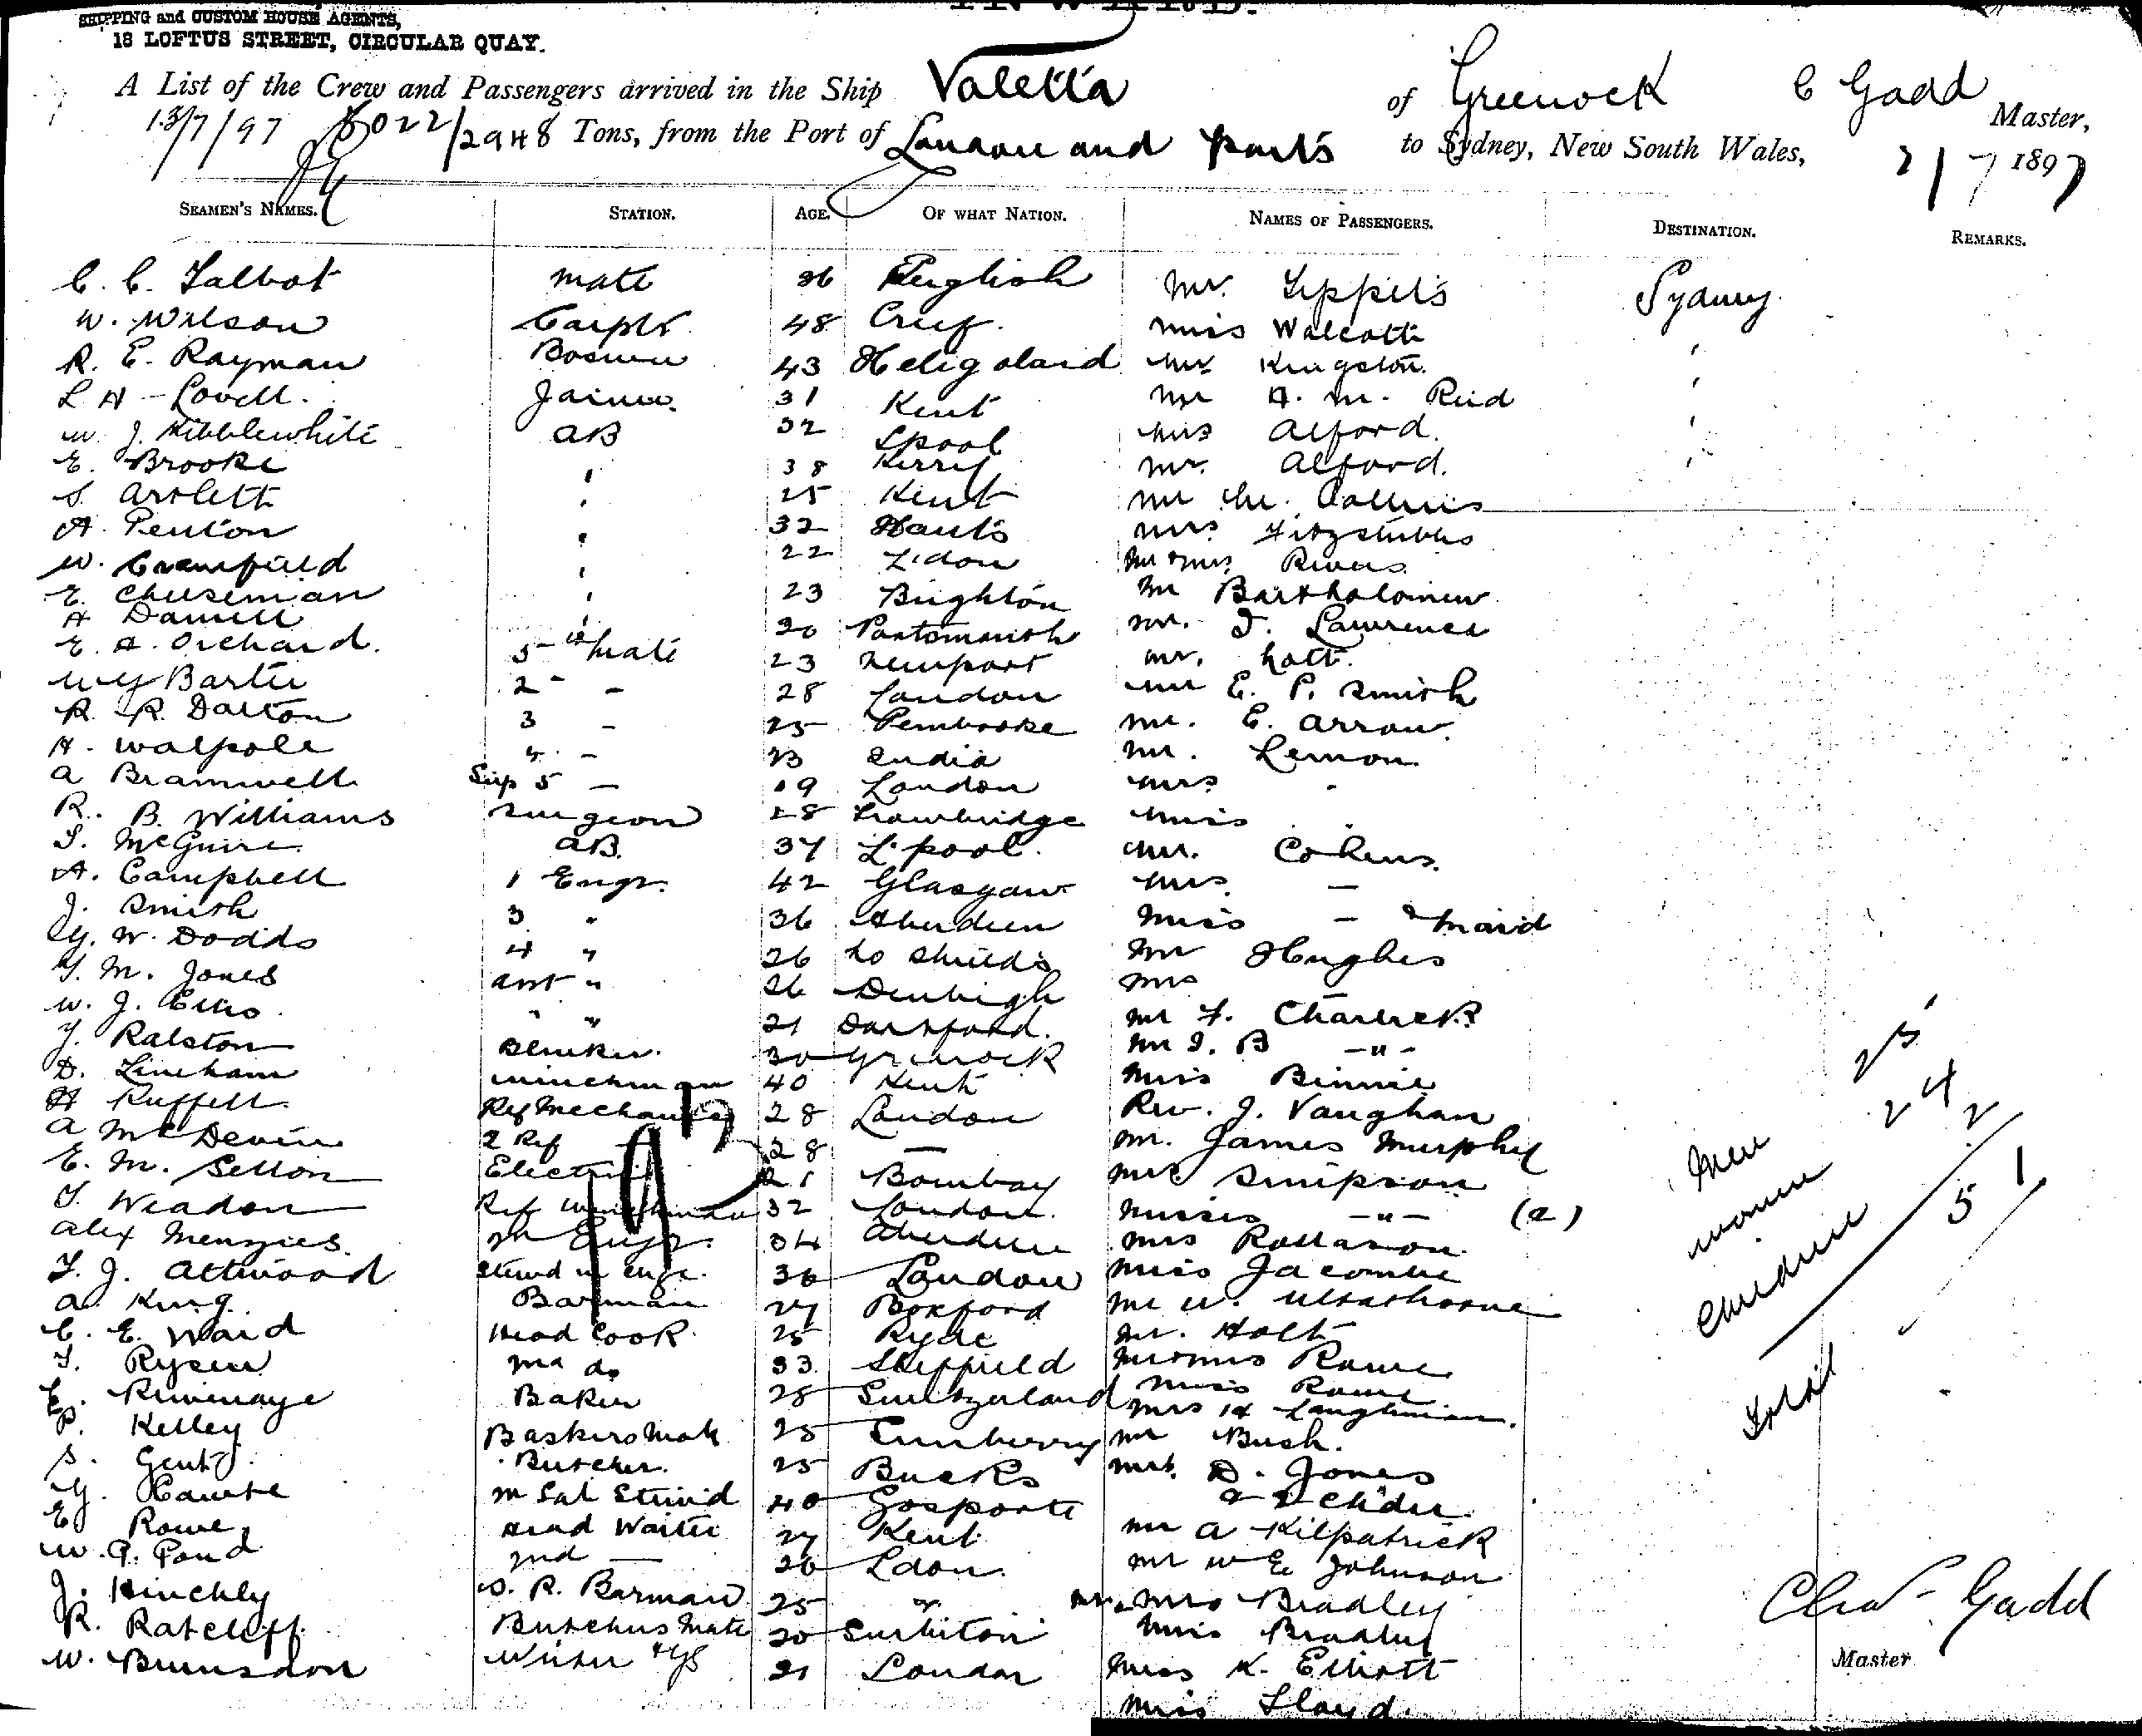 SHIPPING and CUSTOM HOUSE AGENTS,
18 LOFTUS STREET, CIRCULAR QUAY.
A List of the Crew and Passengers arrived in the Ship Valetta of Greenock C Gadd Master,
13/7/97 5022/2948 Tons, from the Port of London and Ports to Sydney, New South Wales, 7 1897
SEAMEN'S NAMES. STATION. AGE. OF WHAT NATION. NAMES OF PASSENGERS. DESTINATION. REMARKS.
C. C. Talbot Mate 36 English Mr. Sydney
W. Wilson Carptr 48 Miss Walcott
R. E. Rayman Bosun 43 Heligoland Mr Kingston
L H - Lovell. 31 Kent Mr A. M. Reid
W. J. Kibblewhite AB 32 Lpool Mrs Alford.
E. Brooke 38 Kerry Mr. Alford.
S. Artlett 25 Kent Mr
A. Penton 32 Hants Mrs Fitzstubbs
W. Cranfield 22 L'don Mr & Mrs Rivers
E. Cheeseman 23 Brighton Mr Bartholomew
H Daniell 20 Portsmouth Mr. Lawrence
E. A. Orchard. 5th Mate 23 Newport Mr.
Barter 2 - - 28 London E. P. Smith
R. R. Dalton 3 - 25 Pembroke Mr. E. Arrow.
H. Walpole 4 - 23 India Mr. Lemon
A Bramwell Sup 5 - 19 London Mrs
R. B. Williams Surgeon 28 Trowbridge Miss
McGuire AB. 37 L'pool. Mr. Cohens.
A. Campbell 1 Engr. 42 Glasgow Mrs -
J. Smith 3 " 36 Aberdeen Miss - & Maid
G. W. Dodds 4 " 26 So Shields Mr Hughes
T. M. Jones Asst " 26 Denbigh Mrs
W. J. Ellis " " 21 Dartford. Mr F. Charlick
J. Ralston 30 Greenock Mr B -"-
D. Lineham Winchman 40 Kent Miss Binnie
H Ruffell. Ref Mechanic 28 London Rev. J. Vaughan
A McDevin 2 Ref 28 - Mr. James Murphy
E. M. Sellon 21 Bombay Mrs Simpson
T. Weadon Ref 32 London. Misses -"- (2)
Alex Menzies. Engr. 34 Aberdeen Mrs Rollason
T. J. Attwood 36 London Miss Jacombe
A. King Barman 27 Boxford Mr W. Ullathorne
C. E. Ward Head Cook 25 Ryde Mr. Holt
do 33 Sheffield Mr & Mrs Rowe
Baker 28 Switzerland Miss Rowe
Mrs
P. Kelley Bakers Mate 25 Mr Bush.
S. Gent Butcher. 25 Bucks Mrs. D. Jones
G. 40 Gosport & 2 Child
E Rowe, Head Waiter 27 Kent Mr A Kilpatrick
W. P. Pond 2nd - 20 Ldon. Mr W E Johnson
J. Hinchly S. R. Barman 25 " Mr & Mrs Bradley
R. Ratcliff Butchers Mate 20 Surbiton Miss Bradley
W. Brunsdon 21 London Miss K. Elliott
Miss Lloyd.
Men 25
Women 24
Children 2
Total 51
Chas Gadd
Master